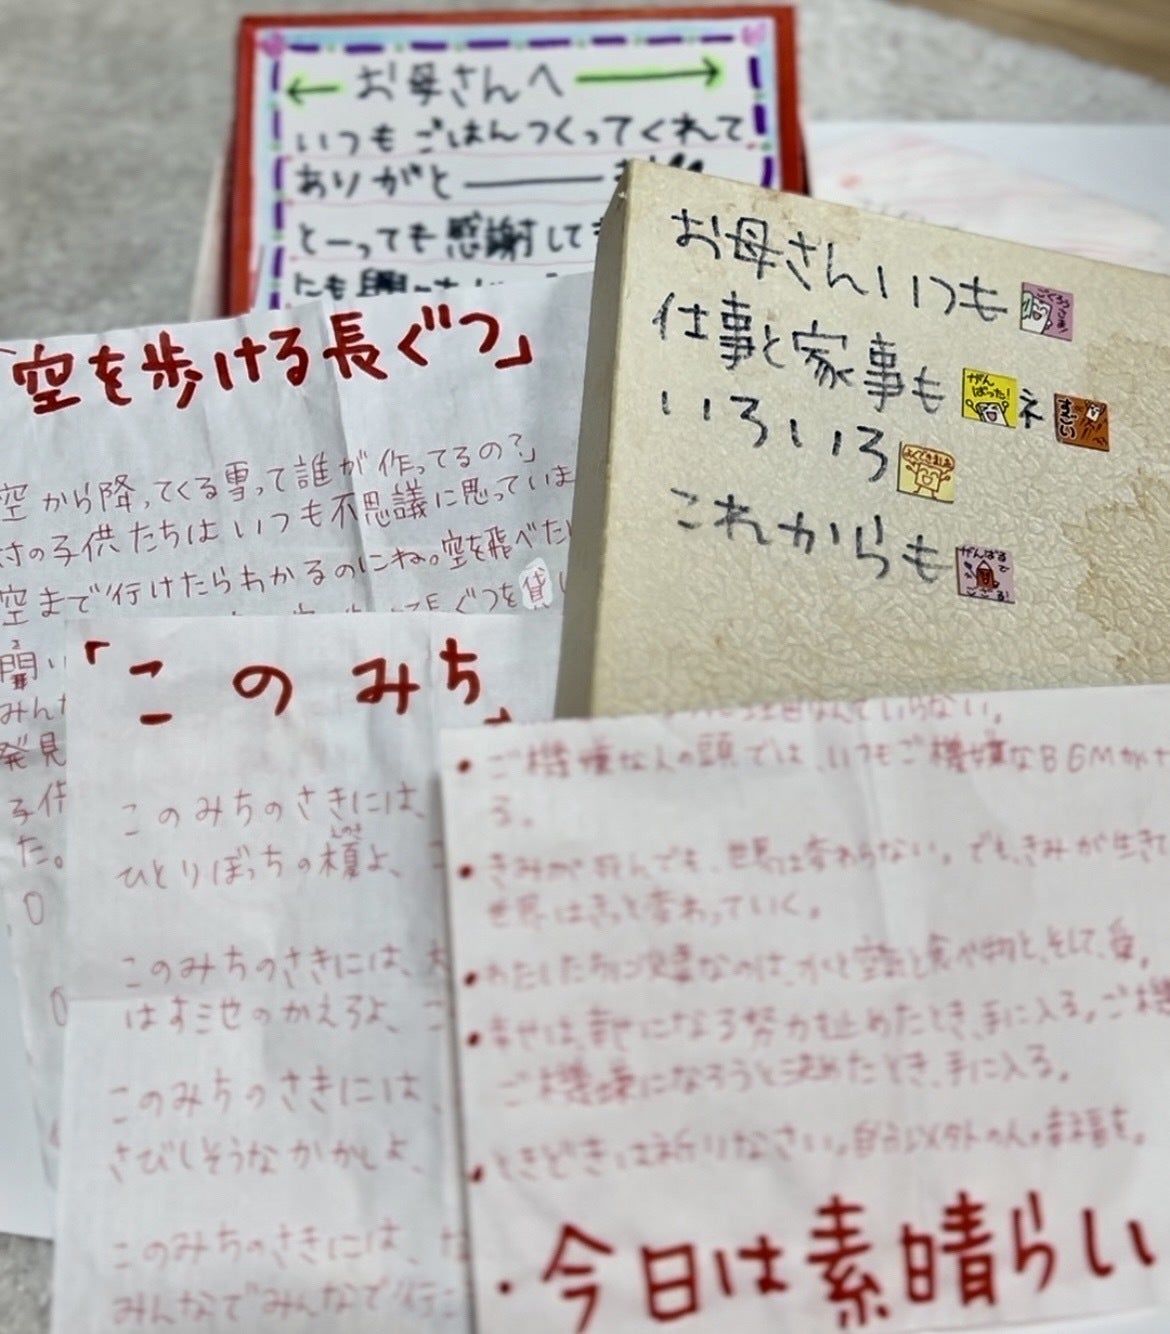 お母さんへ
いつもごはんつくってくれて
ありがと
とーっても感謝して
にも
お母さんいつも
ごくろうさま
仕事と家事も
がんばった!
ネ
すごい
いろいろ
よくできました
これからも
がんばるで
ござる!
「空を歩ける長ぐつ」
空から降ってくる雪って誰が作ってるの?」
村の子供たちはいつも不思議に思っていま
空まで行けたらわかるのにね。空を飛べた
ぐつを貸し
聞い
みんな
発見
子供
た。
「このみち」
このみちのさきには、
ひとりぼっちの榎よ、
えのき
このみちのさきには、
はす池のかえろよ、
このみちのさきには、
さびしそうなかかしよ、
このみちのさきには、
みんなでみんなで行こ
なんていらない。
・ご機嫌な人の頭では、いつもご機嫌なBGMが
る。
・きみが死んでも、世界は変わらない。でも、きみが生きて
世界はきっと変わっていく。
・わたしたちに必要なのは、水と空気と食べ物と、そして、愛。
・幸せは、幸せになる努力を止めたとき、手に入る。ご機
ご機嫌になろうと決めたとき、手に入る。
・ときどきは祈りなさい。自分以外の人の幸福を。
・今日は素晴らしい